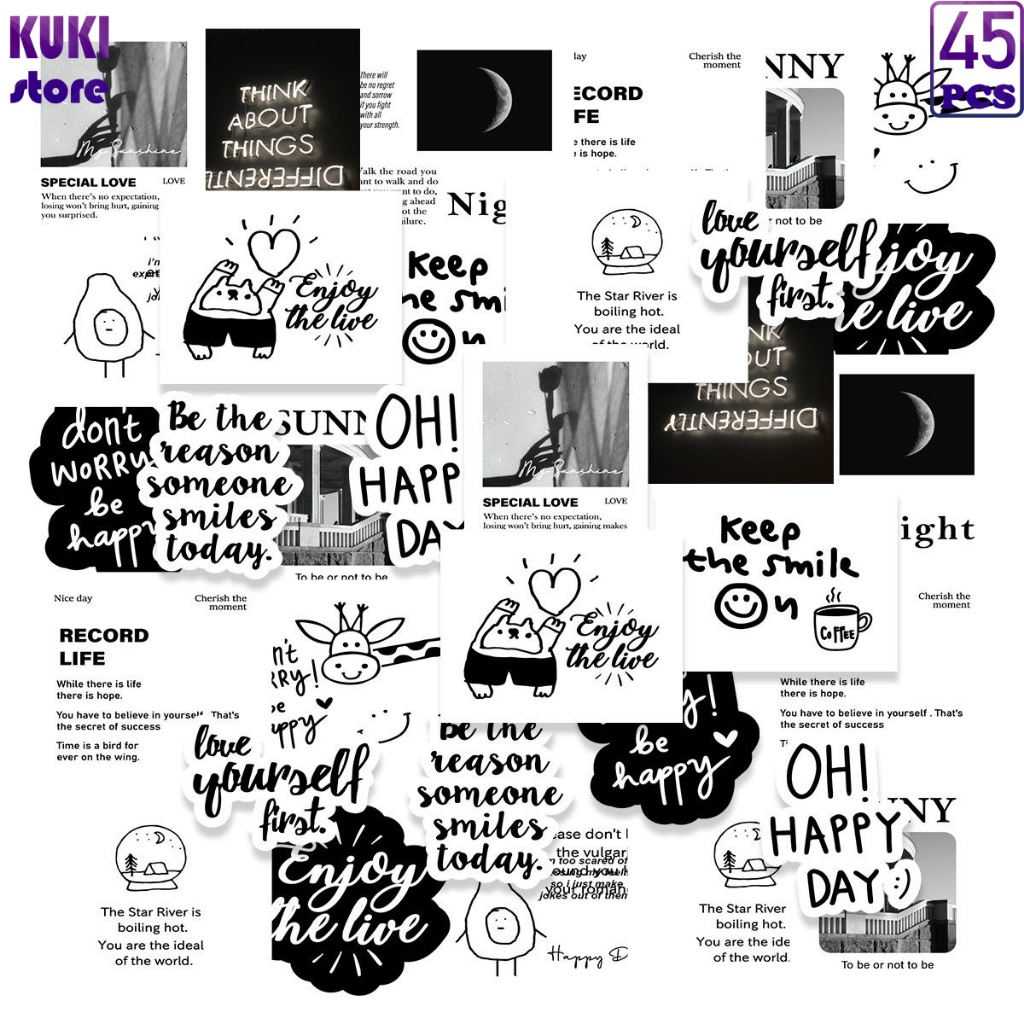 KUKI
store
45
PCS
My Sunshine
SPECIAL LOVE
LOVE
When there's no expectation,
losing won't bring hurt, gaining
you surprised.
THINK
ABOUT
THINGS
DIFFERENTL
There will
be no regret
and sorrow
if you fight
with all
your strength.
alk the road you
ant to walk and do
to do,
ahead
ot the
ilure.
Nig
lay
Cherish the
moment
ECORD
FE
there is life
is hope.
NNY
or not to be
Enjoy
the live
Keep
he smi
n
The Star River is
boiling hot.
You are the ideal
of the world.
love
yourself
first.
joy
e live
NK
OUT
THINGS
DIFFERENTLY
don't
WORRY
be
happy
Be the
reason
someone
smiles
today.
SUNN
To be or not to be
OH!
HAPP
DA
My Sunshine
SPECIAL LOVE
LOVE
When there's no expectation,
losing won't bring hurt, gaining makes
Keep
the smile
n
COFFEE
ight
Nice day
Cherish the
moment
RECORD
LIFE
While there is life
there is hope.
You have to believe in yourself . That's
the secret of success
Time is a bird for
ever on the wing.
n't
RRY!
be
appy
Enjoy
the live
Cherish the
moment
While there is life
there is hope.
You have to believe in yourself . That's
the secret of success
love
yourself
first.
Be the
reason
someone
smiles
today.
y!
be
happy
OH!
HAPPY
DAY
NNY
To be or not to be
The Star River is
boiling hot.
You are the ideal
of the world.
Enjoy
the live
ease don't
the vulgar
n too scared of
so i just make
jokes out of them
Happy D
The Star River
boiling hot.
You are the ide
of the world.